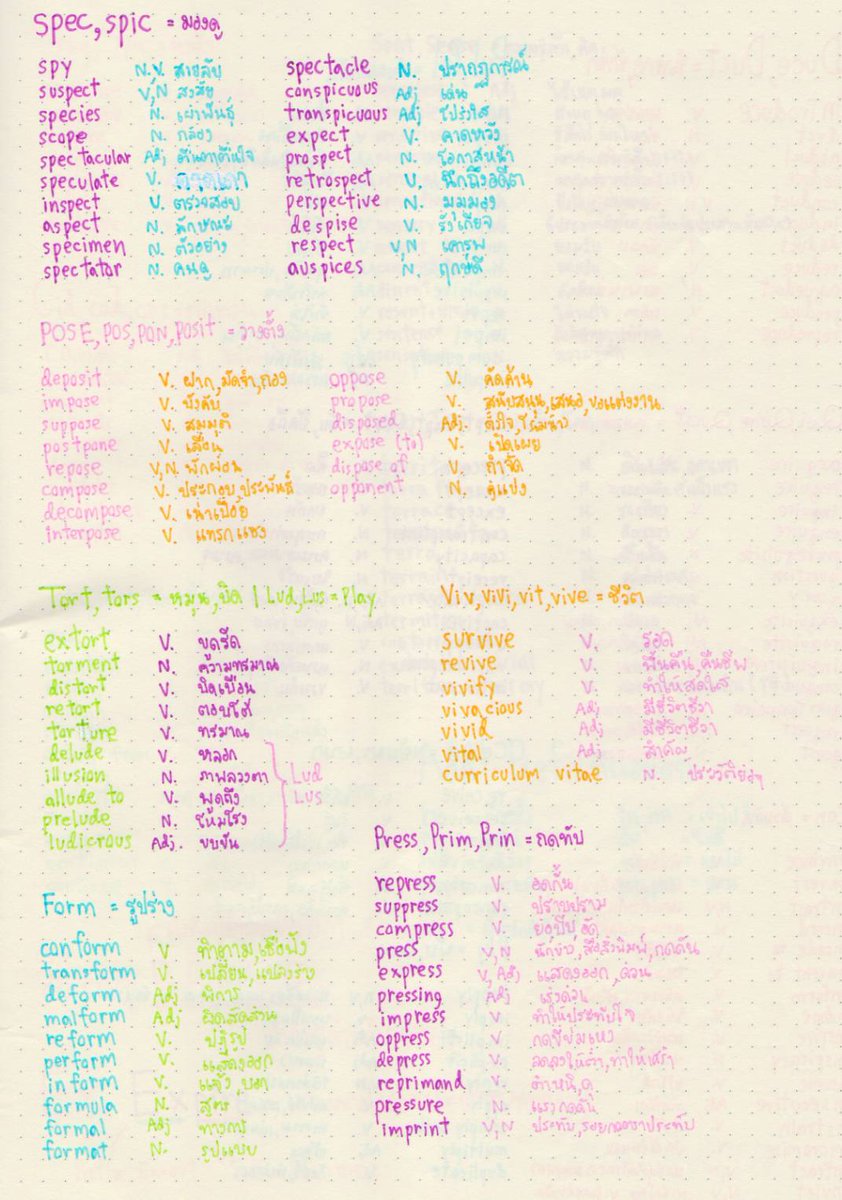 Spec, spic = มองดู
spy N.V. สายลับ
suspect V,N สงสัย
species N. เผ่าพันธุ์
scope N. กล้อง
spectacular Adj ตื่นตาตื่นใจ
speculate V. คาดเดา
inspect V. ตรวจสอบ
aspect N. ลักษณะ
specimen N. ตัวอย่าง
spectator N. คนดู
spectacle N. ปรากฏการณ์
conspicuous Adj เด่น
transpicuous Adj โปร่งใส
expect V. คาดหวัง
prospect N. โอกาสหน้า
retrospect V. นึกถึงอดีต
perspective N. มุมมอง
despise V. รังเกียจ
respect V,N เคารพ
auspices N. ฤกษ์ดี
POSE, pos, pon, posit = วางตั้ง
deposit V. ฝาก, มัดจำ, กอง
impose V. บังคับ
suppose V. สมมุติ
postpone V. เลื่อน
repose V,N. พักผ่อน
compose V. ประกอบ, ประพันธ์
decompose V. เน่าเปื่อย
interpose V. แทรกแซง
oppose V. คัดค้าน
propose V. สนับสนุน, เสนอ, ขอแต่งงาน
disposed Adj. ตั้งใจ, โน้มน้าว
expose (to) V. เปิดเผย
dispose of V. กำจัด
opponent N. คู่แข่ง
Tort, tors = หมุน, บิด | Lud, Lus = Play
extort V. ขูดรีด
torment N. ความทรมาณ
distort V. บิดเบือน
retort V. ตอบโต้
torture V. ทรมาณ
delude V. หลอก
illusion N. ภาพลวงตา
allude to V. พูดถึง
prelude N. โหมโรง
ludicrous Adj. ขบขัน
Lud
Lus
Viv, vivi, vit, vive = ชีวิต
survive V. รอด
revive V. ฟื้นคืน, คืนชีพ
vivify V. ทำให้สดใส
vivacious Adj มีชีวิตชีวา
vivid Adj มีชีวิตชีวา
vital Adj สำคัญ
curriculum vitae N. ประวัติย่อๆ
Press, Prim, Prin = กดทับ
repress V. อดกลั้น
suppress V. ปราบปราม
compress V. ย่อบีบอัด
press V,N นักข่าว, สื่อสิ่งพิมพ์, กดดัน
express V, Adj แสดงออก, ด่วน
pressing Adj เร่งด่วน
impress V. ทำให้ประทับใจ
oppress V. กดขี่ข่มเหง
depress V. ลดลงให้ต่ำ, ทำให้เศร้า
reprimand V. ตำหนิ, ดุ
pressure N. แรงกดดัน
imprint V,N ประทับ, รอยกดตราประทับ
Form = รูปร่าง
conform V ทำตาม, เชื่อฟัง
transform V. เปลี่ยน, แปลงร่าง
deform Adj พิการ
malform Adj ผิดสัดส่วน
reform V. ปฏิรูป
perform V. แสดงออก
inform V. แจ้ง บอก
formula N. สูตร
formal Adj ทางการ
format N. รูปแบบ